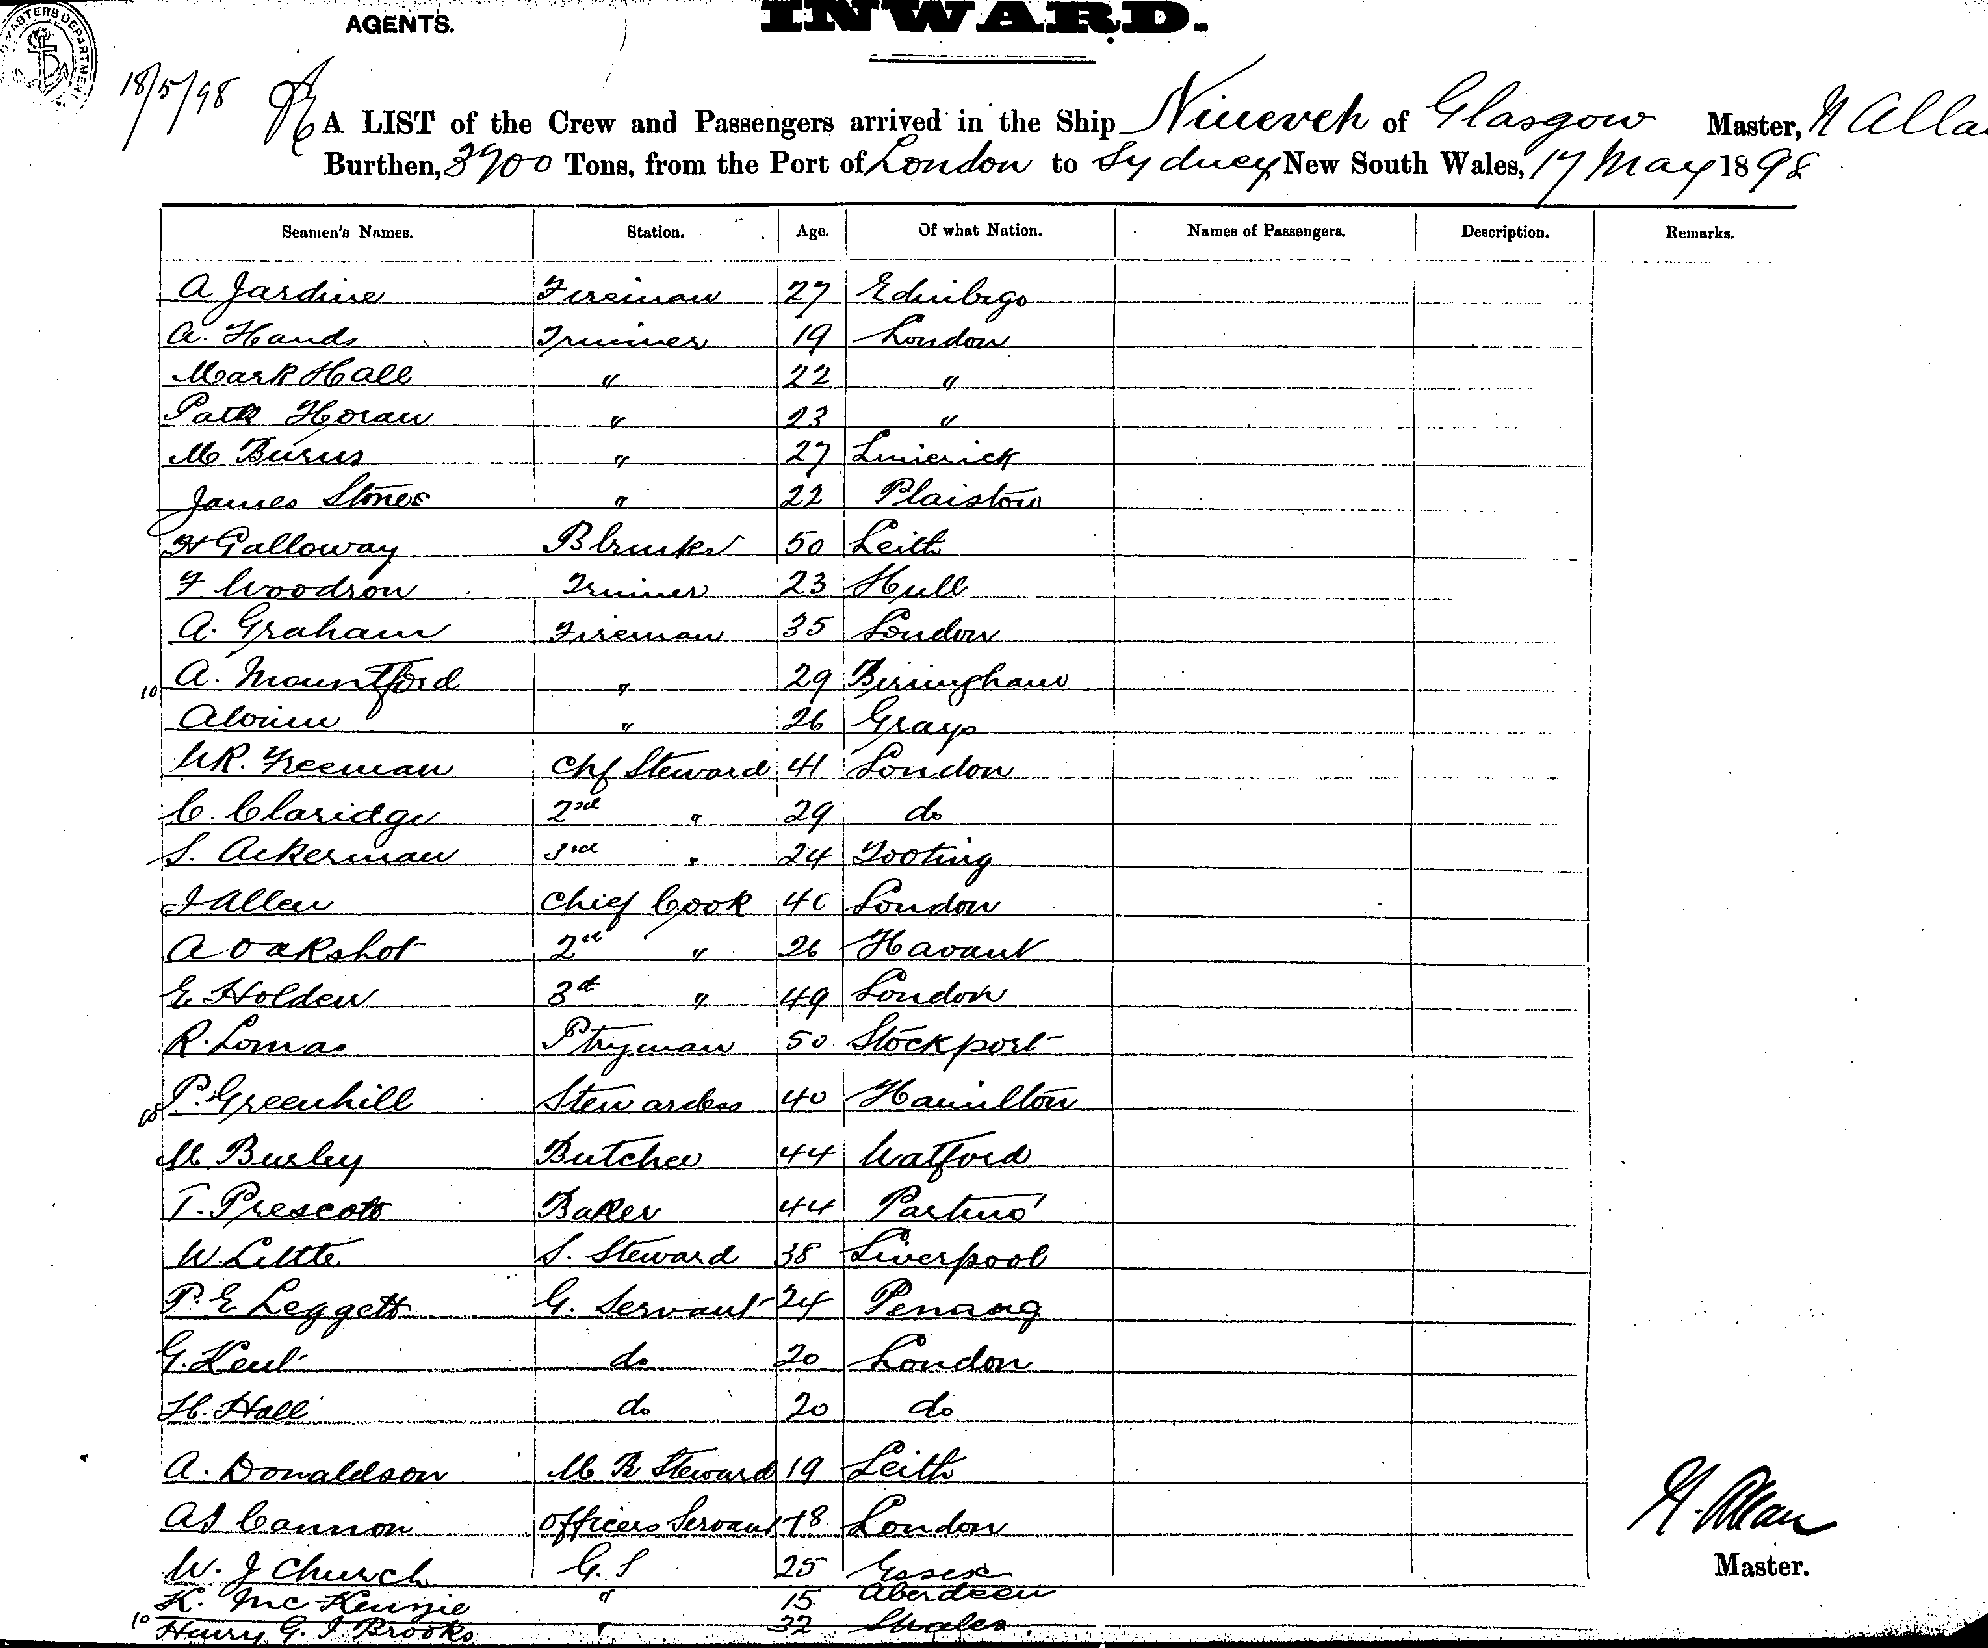 AGENTS.
INWARD.
18/5/98
A LIST of the Crew and Passengers arrived in the Ship Nineveh of Glasgow Master, N Alla
Burthen, 3900 Tons, from the Port of London to Sydney New South Wales, 17 May 1898
Seamen's Names. Station. Age. Of what Nation. Names of Passengers. Description. Remarks.
A Jardine Fireman 27 Edinbrgo
A. Hands Trimmer 19 London
Mark Hall " 22 "
Patk Horan " 23 "
M Burns " 27 Limerick
James Stones " 22 Plaistow
H Galloway 50 Leith
F Woodrow Trimmer 23 Hull
A. Graham Fireman 35 London
10 A. Mountford " 29 Birmingham
" 26 Grays
W R. Freeman Chf Steward 41 London
C. Claridge 2nd " 29 do
S. Ackerman 3rd " 24 Tooting
J Allen Chief Cook London
A Oakshot 2nd " 26 Havant
E Holden 3rd " 49 London
R. Lomas Ptryman 50 Stockport
P. Greenhill Stewardess 40 Hamilton
M Burley Butcher 44 Watford
T. Prescott Baker 44
W. Little S. Steward 38 Liverpool
P. E Leggett G. Servant 24 Penang
G. Kent do 20 London
H. Hall do 20 do
A. Donaldson M R Steward 19 Leith
A J Cannon Officers Servant 18 London
W. J Church G. S 25 Essex
K. McKenzie " 15 Aberdeen
10 Harry G. J Brooks " 32
N. Allan
Master.